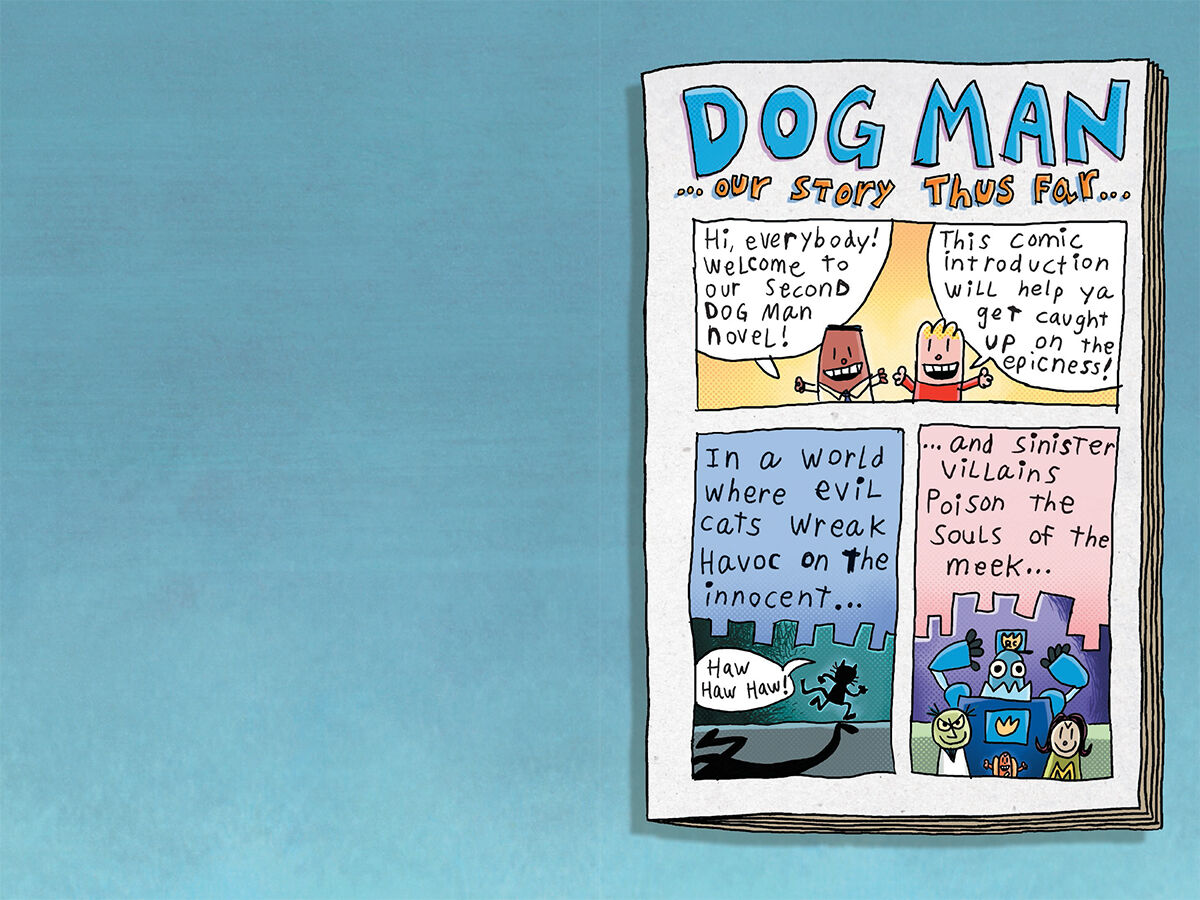 DOG MAN
...our story thus far...
Hi, everybody!
Welcome to
our second
Dog Man
novel!
This comic
introduction
will help ya
get caught
up on the
epicness!
In a world
where evil
cats wreak
havoc on the
innocent...
Haw
Haw Haw!
...and sinister
villains
poison the
souls of the
meek...
RC
M